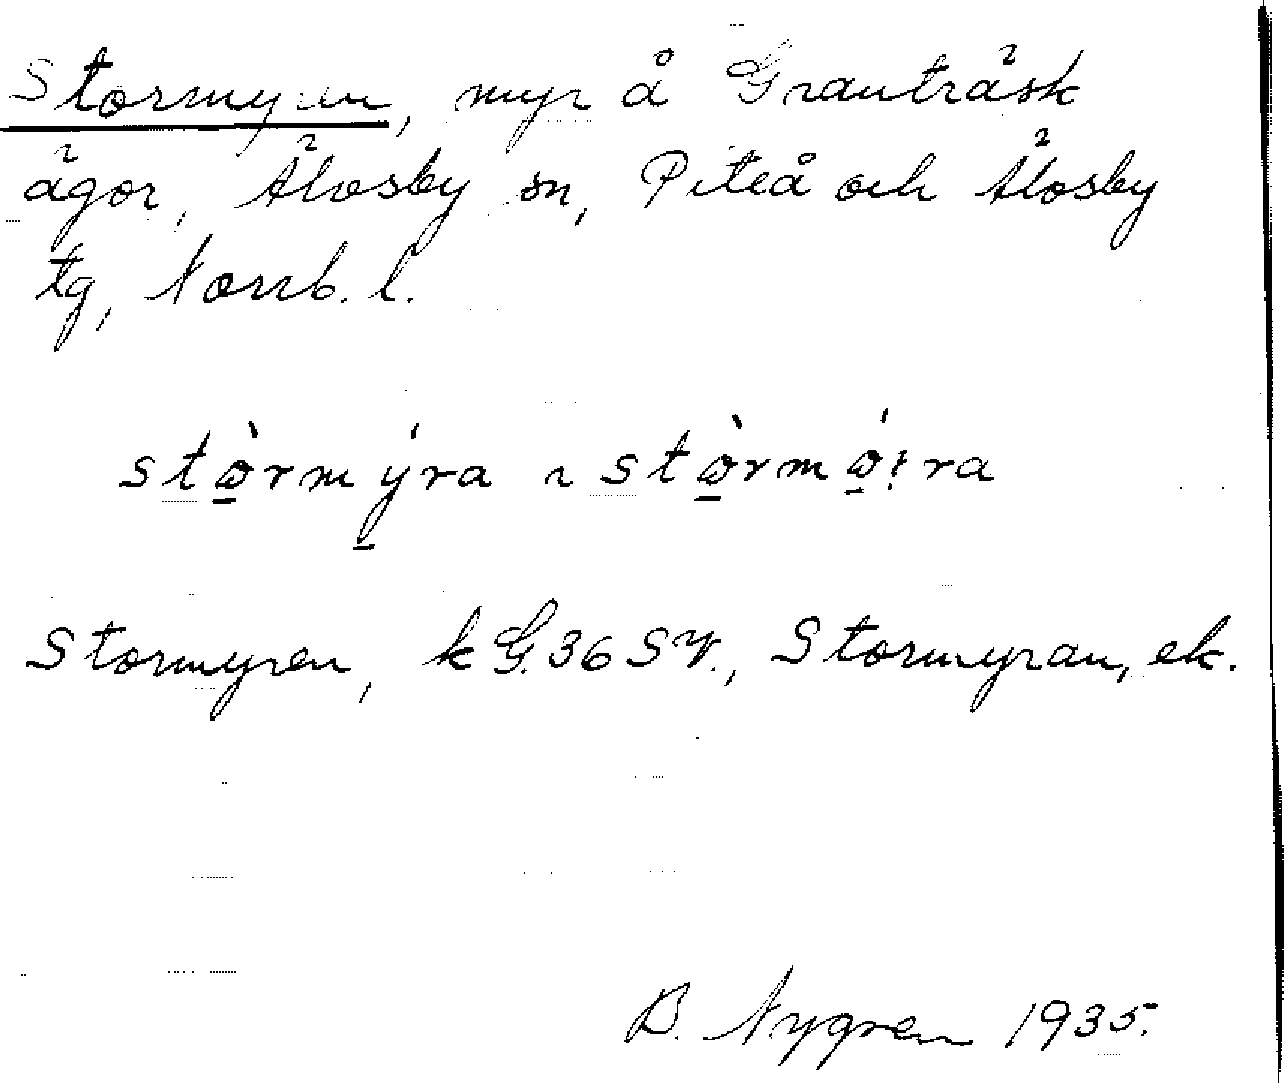 Stormyran, myr å Granträsk
ägor, Älvsby sn, Piteå och Älvsby
tg, Norrb. l.
stò̱rmý̱ra ~ stò̱rmǿ̱:ra
Stormyren, k G. 36 SV., Stormyran, ek.
B. Nygren 1935.